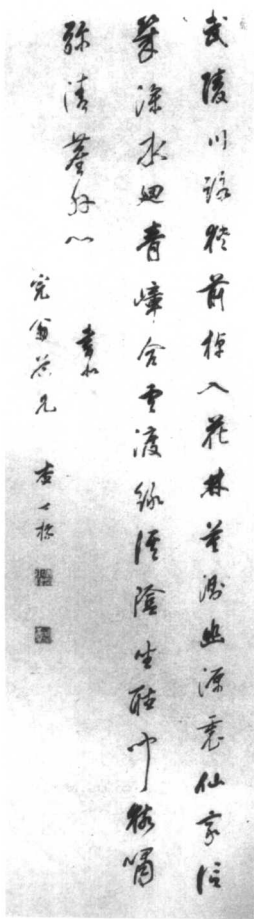 武陵川路狹前棹入花林莫測幽源裏仙家信
幾深水迴青嶂合雲渡綠溪陰坐聽閒猿嘯
彌清塵外心
書似
完翁 兄 查士標